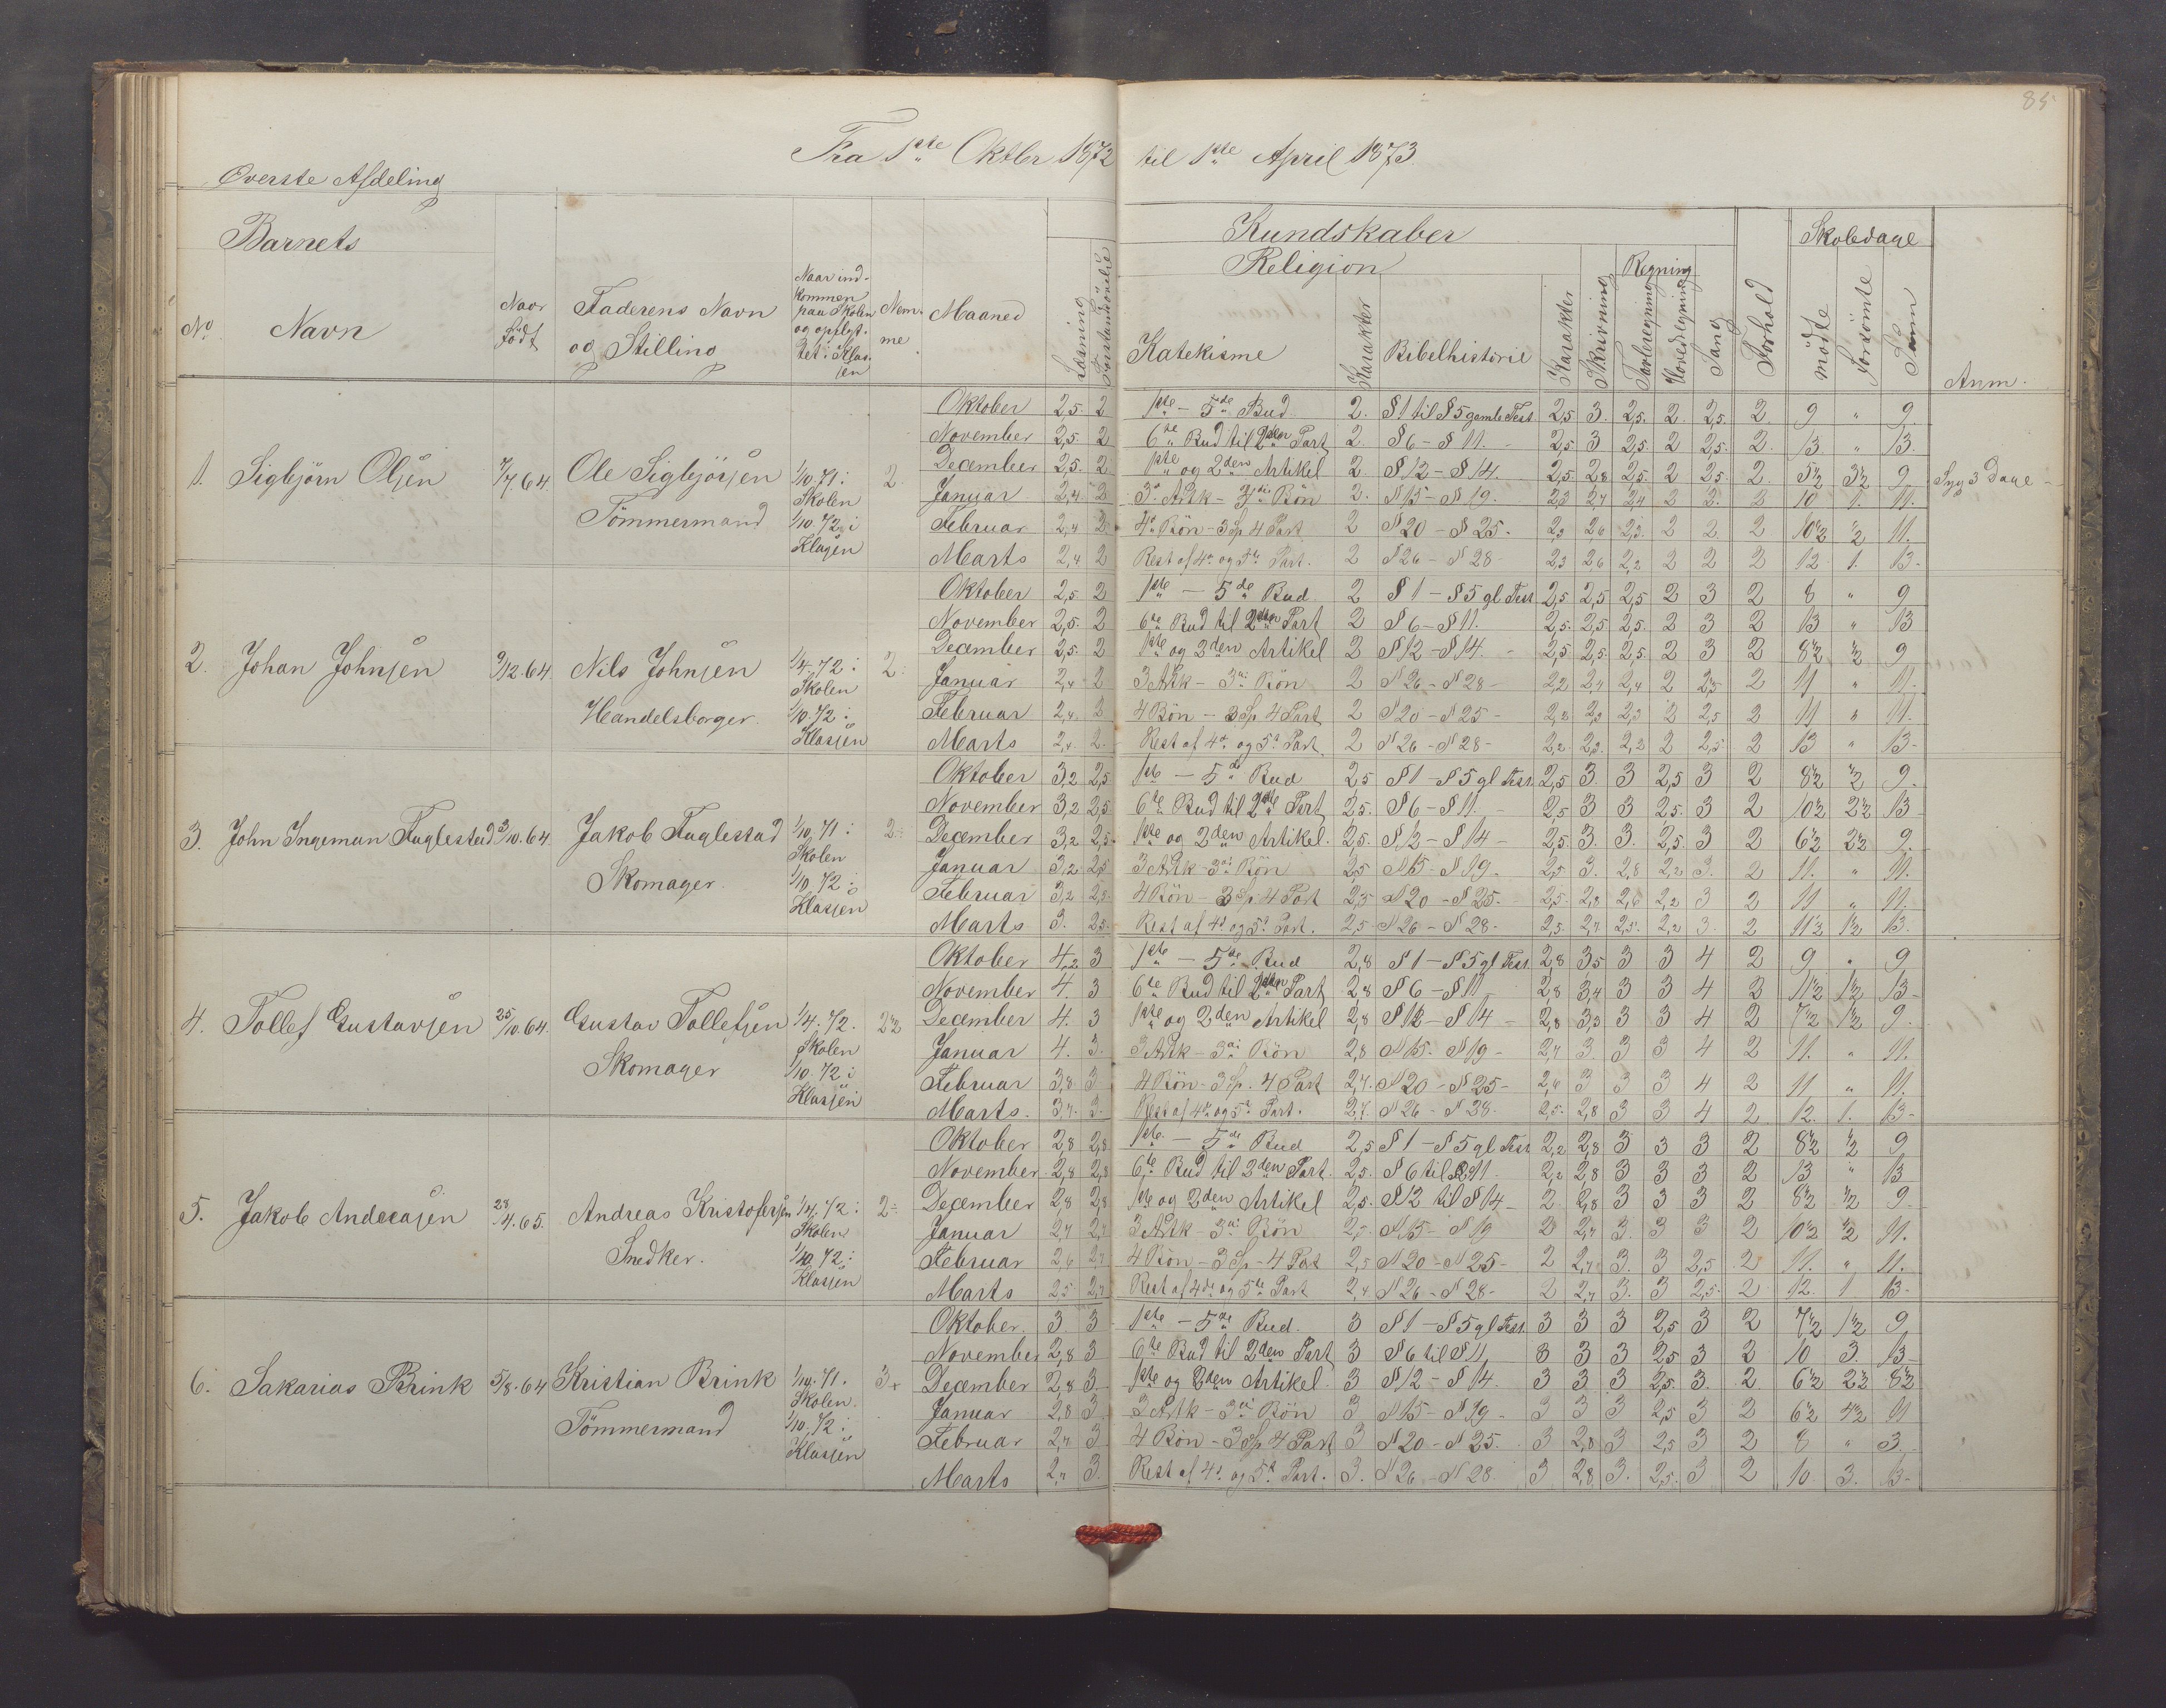 85
Fra 1ste Oktbr 1872 til 1ste April 1873.
Øverste Afdeling
Barnets
Kundskaber
Skoledage
Religion
Regning
No Navn Naar født Faderens Navn og Stilling Naar indkommen paa Skolen og opflyttet i Klassen Nemme Maaned Læsning Forstandsøvelse Katekisme Karakter Bibelhistorie Karakter Skrivning Tavleregning Hovedregning Sang Forhold mødte forsømte Sum Anm.
1. Sigbjörn Olsen 7/7.64. Ole Sigbjörsen Tömmermand 1/10.71 i Skolen 1/10.72 i Klassen 2
Oktober 2,5. 2 1ste – 5de Bud 2. § 1 til § 5 gamle Test 2,5 3. 2,5. 2. 2,5. 2 9 " 9
November 2,5. 2 6te Bud til 2den Part 2. § 6 – § 11. 2,5 3 2,5. 2 2,5. 2. 13. " 13.
December 2,5. 2 1ste og 2den Artikel 2. § 12 – § 14. 2,5 2,8 2,5. 2 2,5. 2. 5½ 3½ 9 Syg 3 Dage
Januar 2,4 2 3die Artk – 3die Bön 2. § 15 – § 19. 2,3 2,7 2,4 2 2. 2 10 1. 11.
Februar 2,4 2 4de Bön – 3 Sp 4 Part 2 § 20 – § 25. 2,3 2,6 2,3. 2 2. 2 10½ ½ 11.
Marts 2,4 2 Rest af 4de og 5te Part. 2 § 26 – § 28 2,3 2,6 2,2 2 2 2 12 1. 13.
2. Johan Johnsen 9/12.64 Nils Johnsen Handelsborger. 1/4.72 i Skolen 1/10.72 i Klassen 2
Oktober 2,5 2 1ste – 5de Bud 2 § 1 – § 5 gl Test 2,5 2,5 2,5 2 3 2 8 " 9
November 2,5. 2 6te Bud til 2den Part 2 § 6 – § 11. 2,5. 2,5 2,5. 2 3 2 13 " 13
December 2,5. 2 1ste og 2den Artikel 2 § 12 – § 14. 2,5 2,5. 2,5. 2 3 2 8½ ½ 9
Januar 2,4 2 3 Artk – 3die Bön 2 § 26 – § 28 – 2,2 2,4 2,4 2 2,5 2 11 " 11.
Februar 2,4. 2 4 Bön – 3 Sp 4 Part 2 § 20 – § 25 – 2,2 2,3 2,3 2 2,5 2 11 " 11.
Marts 2,4. 2. Rest af 4de og 5te Part 2 § 26 – § 28 – 2,2 2,3. 2,2 2 2,5 2 13 " 13-
3. John Ingeman Fuglestad 3/10.64. Jakob Fuglestad Skomager. 1/10.71 i Skolen 1/10.72 i Klassen 2
Oktober 3,2 2,5 1ste – 5te Bud 2,5 § 1 – § 5 gl Test. 2,5 3. 3 2,5 3 2 8½ ½ 9.
November 3,2 2,5 6te Bud til 2den Part 2,5. § 6 – § 11. 2,5 3 3 2,5. 3 2 10½ 2½ 13
December 3,2 2,5 1ste og 2den Artikel. 2,5. § 12 – § 14 2,5. 3. 3. 2,5. 3 2 6½ 2½ 9.
Januar 3,2 2,5 3 Artk – 3die Bön 2,5 § 15 – § 19. 2,5 3. 2,8 2,2 3. 2 11. " 11.
Februar 3,2 2,5. 4 Bön – 3 Sp 4 Part 2,5 § 20 – § 25. 2,5. 2,8 2,6 2,2 3 2 11 " 11.
Marts 3. 2,5. Rest af 4de og 5te Part. 2,5 § 26 – § 28 – 2,5. 2,7. 2,5. 2,2 3. 2 11½ 1½ 13.
4. Tollef Gustavsen 25/10.64. Gustav Tollefsen Skomager 1/4.72. Skolen 1/10.72 i Klassen 2½
Oktober 4,2 3 1ste – 5te Bud 2,8 § 1 – § 5 gl Test. 2,8 3,5 3 3 4 2 9 " 9
November 4. 3 6te Bud til 2den Part 2,8 § 6 – § 11 2,8 3,4 3 3 4 2 11½ 1½ 13
December 4. 3 1ste og 2den Artikel 2,8 § 12 – § 14 – 2,8 3,3 3 3 4 2 7½ 1½ 9.
Januar 4. 3. 3 Artk – 3die Bön 2,8 § 15. § 19 – 2,7 3. 3 3 4 2 11. " 11.
Februar 3,8 3 4 Bön – 3 Sp. 4 Part 2,7. § 20 – § 25 – 2,6 3 3 3 4 2 11 " 11.
Marts. 3,7. 3. Rest af 4de og 5te Part. 2,7. § 26 – § 28. 2,5. 2,8 3 3 4 2 12. 1. 13-
5. Jakob Andreasen 28/4.65. Andreas Kristofersen Snedker. 1/4.72 i Skolen 1/10.72 i Klassen 2
Oktober 2,8 2,8 1ste – 5de Bud 2,5 § 1 – § 5 gl Test 2,2 2,8 3 3 3 2 8½ ½ 9
November 2,8 2,8 6te Bud til 2den Part. 2,5. § 6 til § 11 2,2 2,8 3 3 3 2 13 " 13
December 2,8 2,8 1ste og 2den Artikel 2,5. § 12 til § 14 2 2,8 3 3 3 2 8½ ½ 9
Januar 2,7 2,7 3 Artk – 3die Bön 2,5 § 15 – § 19 2 2,7 3. 3 3 2 10½ ½ 11.
Februar 2,6 2,7 4 Bön – 3 Sp – 4 Part 2,5 § 20 – § 25 – 2 2,7 3. 3 2,5 2 11. " 11.
Marts 2,5 2,7 Rest af 4de og 5te Part 2,4 § 26 – § 28 – 2 2,7 3. 3 2,5 2 12. 1 13-
6. Sakarias Brink 5/8.64 Kristian Brink Tömmermand 1/10.71. Skolen. 1/10.72 i Klassen 3+
Oktober. 3. 3 1ste – 5te Bud. 3 § 1 – § 5 gl Test. 3 3 3 2,5 3 2 7½ 1½ 9
November 2,8 3 6te Bud til 2den Part 3 § 6 til § 11 3 3 3 2,5 3 2 10 3. 13-
December 2,8 3. 1ste og 2den Artikel. 3 § 12 – § 14. 3 3 3 2,5. 3. 2. 6½ 2½ 8½
Januar 2,8 3. 3 Artk – 3die Bön 3 § 15 – § 19 – 3 3 3 2,5 3 2 6½ 4½ 11
Februar 2,7 3 4 Bön – 3 Sp 4 Part 3 § 20 – § 25. 3 2,8 3 2,5 3 2 8 " 3
Marts 3. Rest af 4de og 5te Part. 3. § 26 – § 28. 3 2,8 3. 2,5. 3 2 10. 3. 13-